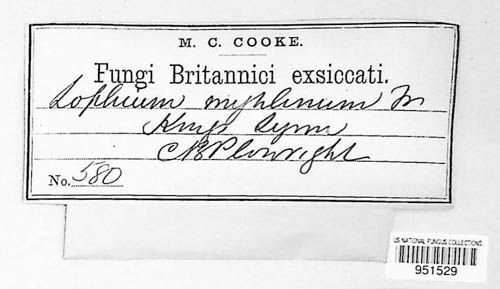 M. C. COOKE.
Fungi Britannici exsiccati.
Lophium mytilinum Fr
Kings Lynn
C B Plowright
No. 580
US NATIONAL FUNGUS COLLECTIONS
951529